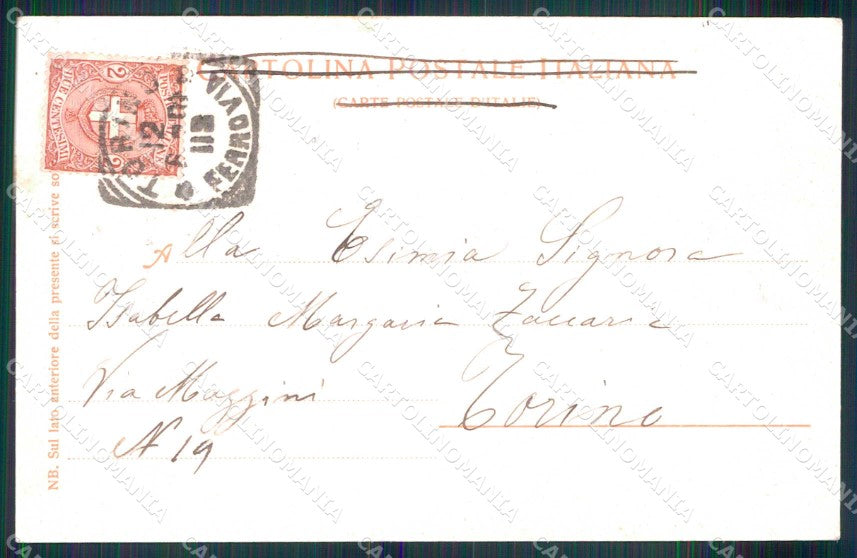 CARTOLINA POSTALE ITALIANA
(CARTE POSTALE D'ITALIE)
DUE CENTESIMI
2
2
TORINO
12
11B
FERROVIA
Alla Esimia Signora
Isabella Margaria Zaccaria
Via Mazzini
N 19
Torino
NB. Sul lato anteriore della presente si scrive so
CARTOLINOMANIA